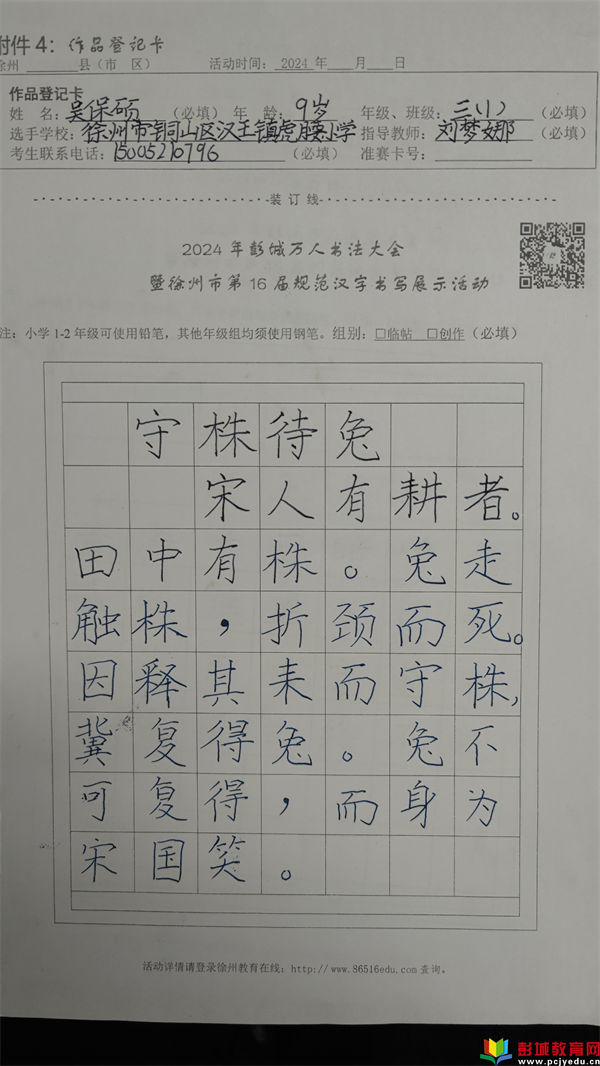 附件4：作品登记卡
徐州 ________ 县（市 区） 活动时间：2024 年___月___日
作品登记卡
姓 名：吴保硕 （必填） 年 龄：9岁 年级、班级：三(1) （必填）
选手学校：徐州市铜山区汉王镇虎腰小学 指导教师：刘梦娜 （必填）
考生联系电话：15005210796 （必填） 准赛卡号：________
装 订 线
2024 年彭城万人书法大会
暨徐州市第 16 届规范汉字书写展示活动
注：小学 1-2 年级可使用铅笔，其他年级组均须使用钢笔。组别：□临帖 □创作（必填）
守株待兔
宋人有耕者。
田中有株。兔走
触株，折颈而死。
因释其耒而守株，
冀复得兔。兔不
可复得，而身为
宋国笑。
活动详情请登录徐州教育在线：http://www.86516edu.com 查询。
彭城教育网
www.pcjyedu.cn